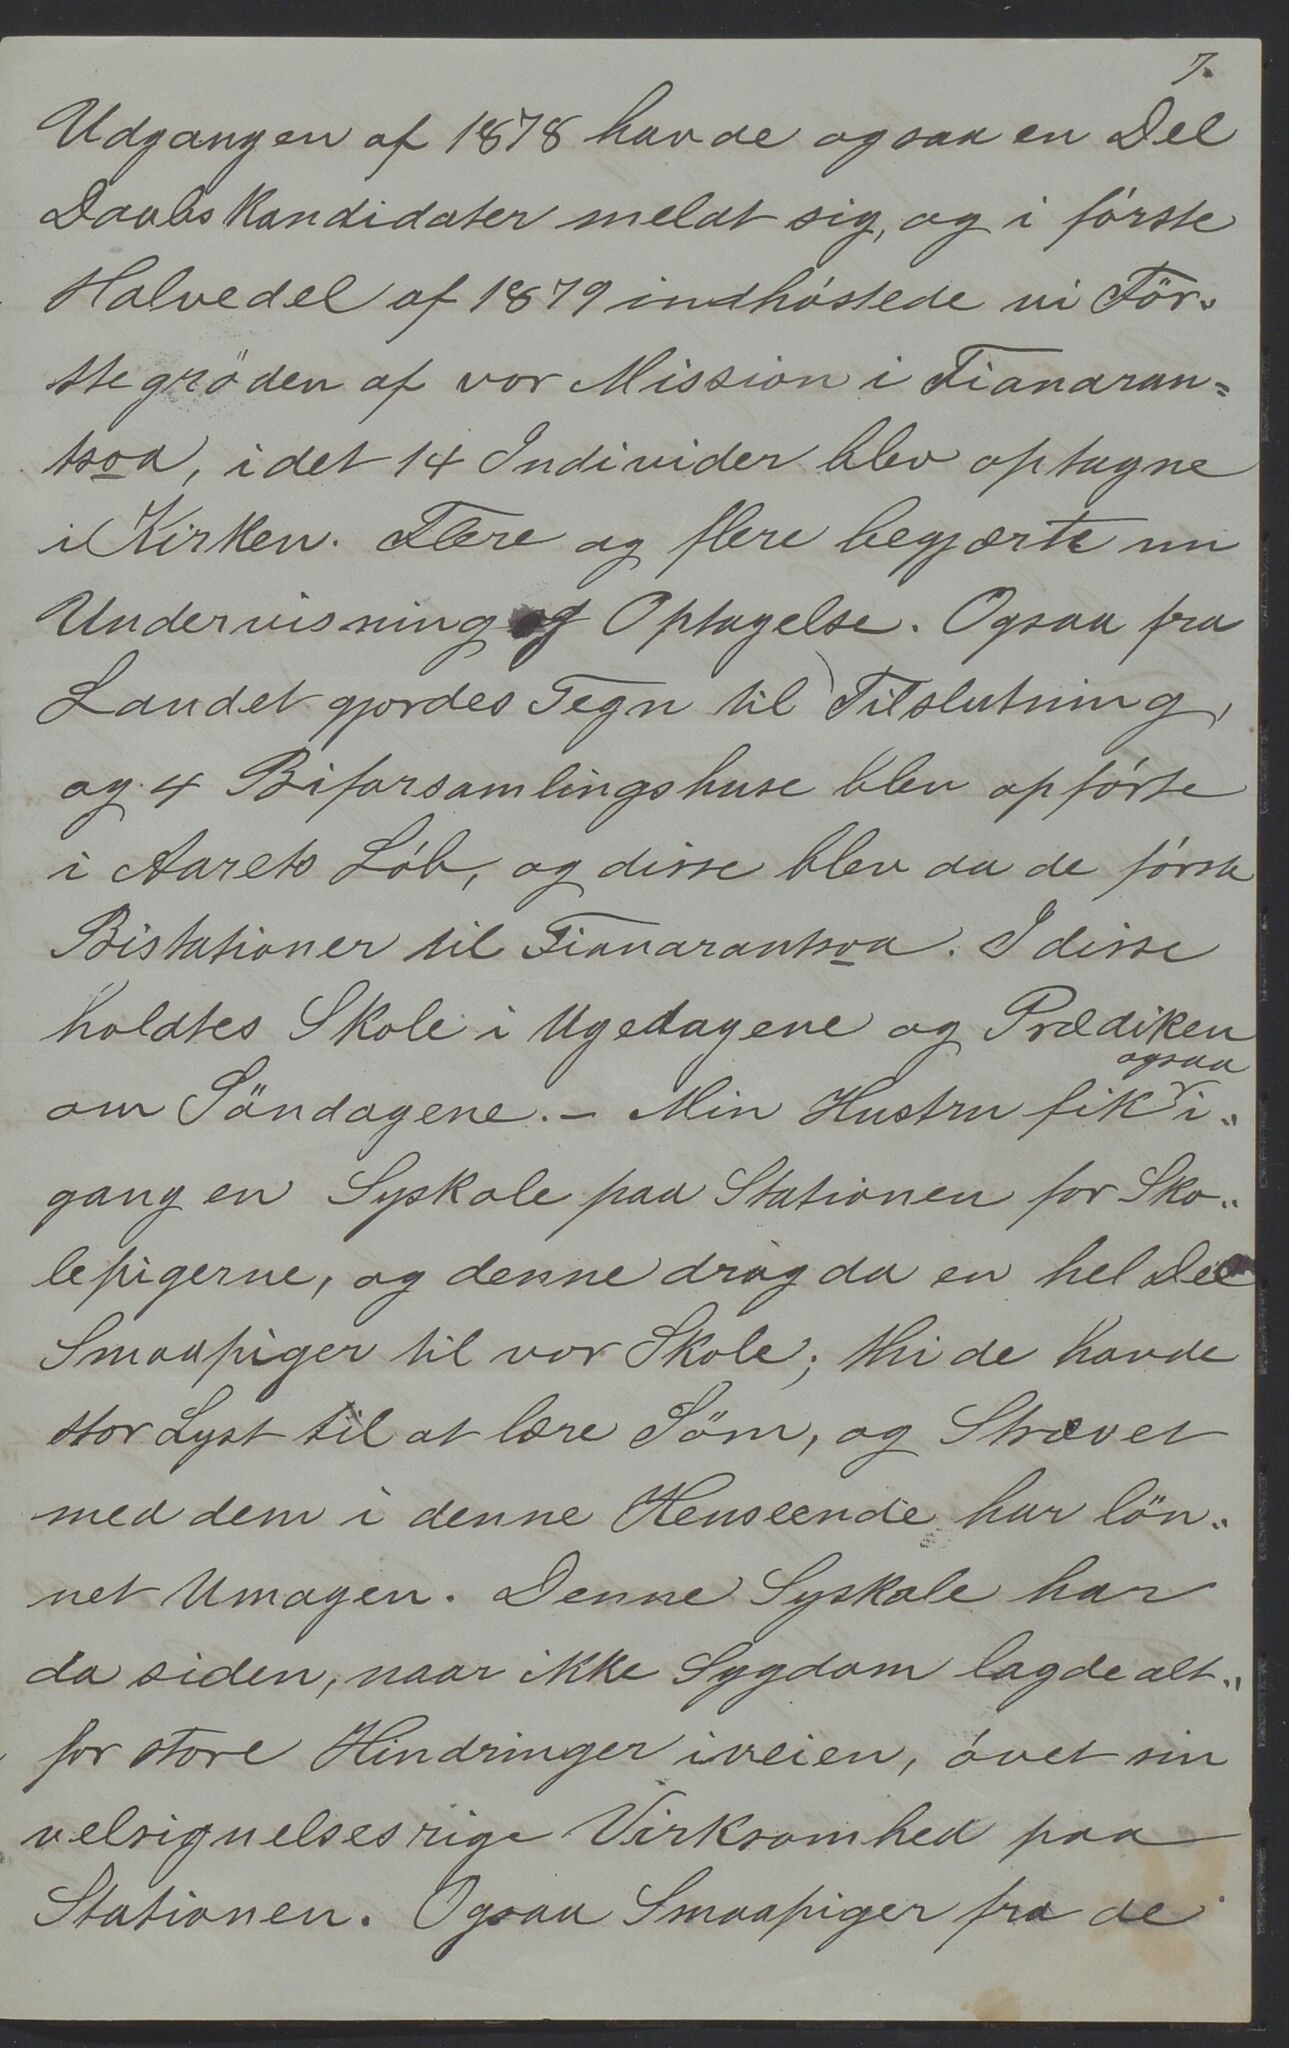 7.
Udgangen af 1878 havde ogsaa en Del
Daabskandidater meldt sig, og i förste
Halvedel af 1879 indhöstede vi För-
stegröden af vor Mission i Fianaran=
tsoa, idet 14 Individer blev optagne
i Kirken. Flere og flere begjærte nu
Undervisning og Optagelse. Ogsaa fra
Landet gjordes Tegn til Tilslutning,
og 4 Biforsamlingshuse blev opförte
i Aarets Löb, og disse blev da de förste
Bistationer til Fianarantsoa. I disse
holdtes Skole i Ugedagene og Prædiken
om Söndagene. - Min Hustru fik ogsaa i-
gang en Syskole paa Stationen for Sko-
lepigerne, og denne drog da en hel Del
Smaapiger til vor Skole; thi de havde
stor Lyst til at lære Söm, og Strævet
med dem i denne Henseende har lön-
net Umagen. Denne Syskole har
da siden, naar ikke Sygdom lagde alt-
for store Hindringer iveien, övet sin
velsignelsesrige Virksomhed paa
Stationen. Ogsaa Smaapiger fra de